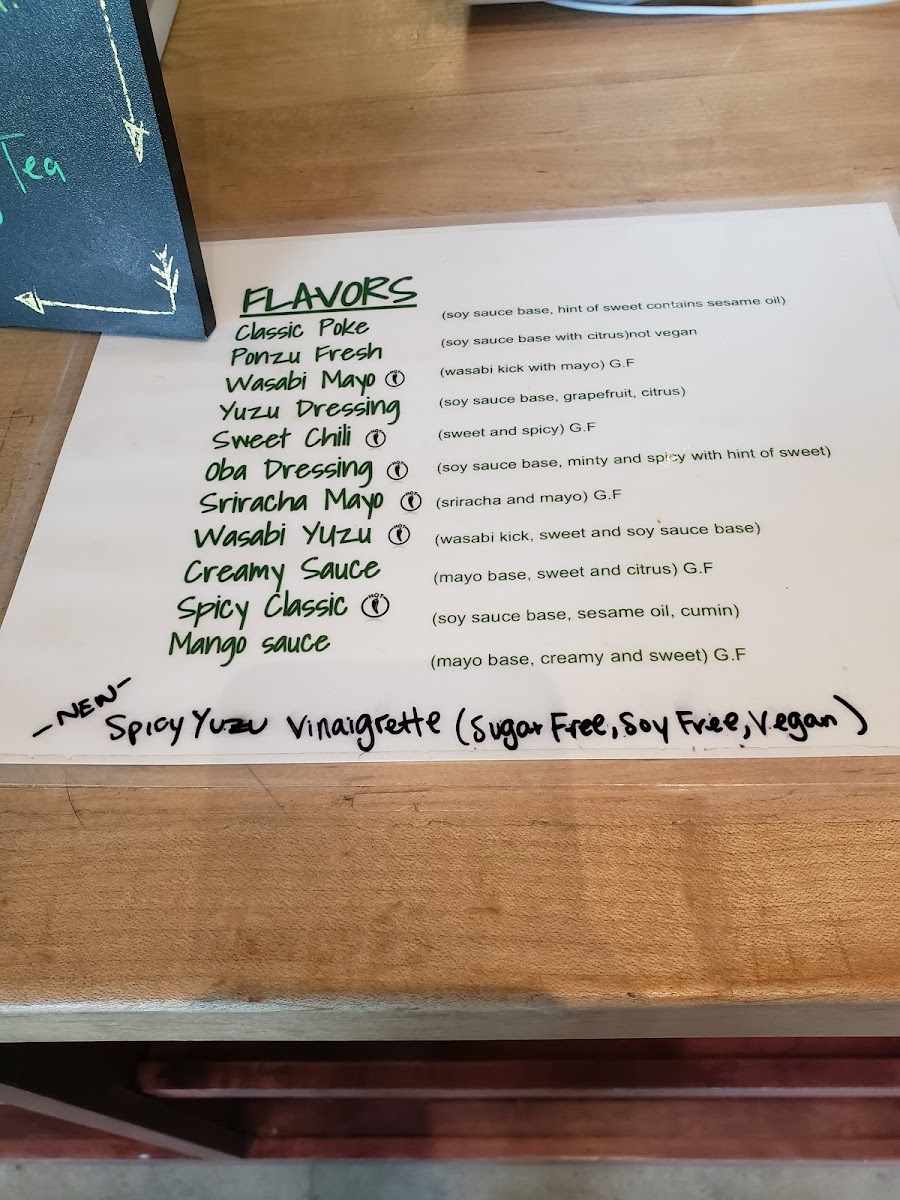 Tea
FLAVORS
Classic Poke (soy sauce base, hint of sweet contains sesame oil)
Ponzu Fresh (soy sauce base with citrus)not vegan
Wasabi Mayo HOT (wasabi kick with mayo) G.F
Yuzu Dressing (soy sauce base, grapefruit, citrus)
Sweet Chili HOT (sweet and spicy) G.F
Oba Dressing HOT (soy sauce base, minty and spicy with hint of sweet)
Sriracha Mayo HOT (sriracha and mayo) G.F
Wasabi Yuzu HOT (wasabi kick, sweet and soy sauce base)
Creamy Sauce (mayo base, sweet and citrus) G.F
Spicy Classic HOT (soy sauce base, sesame oil, cumin)
Mango sauce (mayo base, creamy and sweet) G.F
-NEW- Spicy Yuzu Vinaigrette (Sugar Free, Soy Free, Vegan)